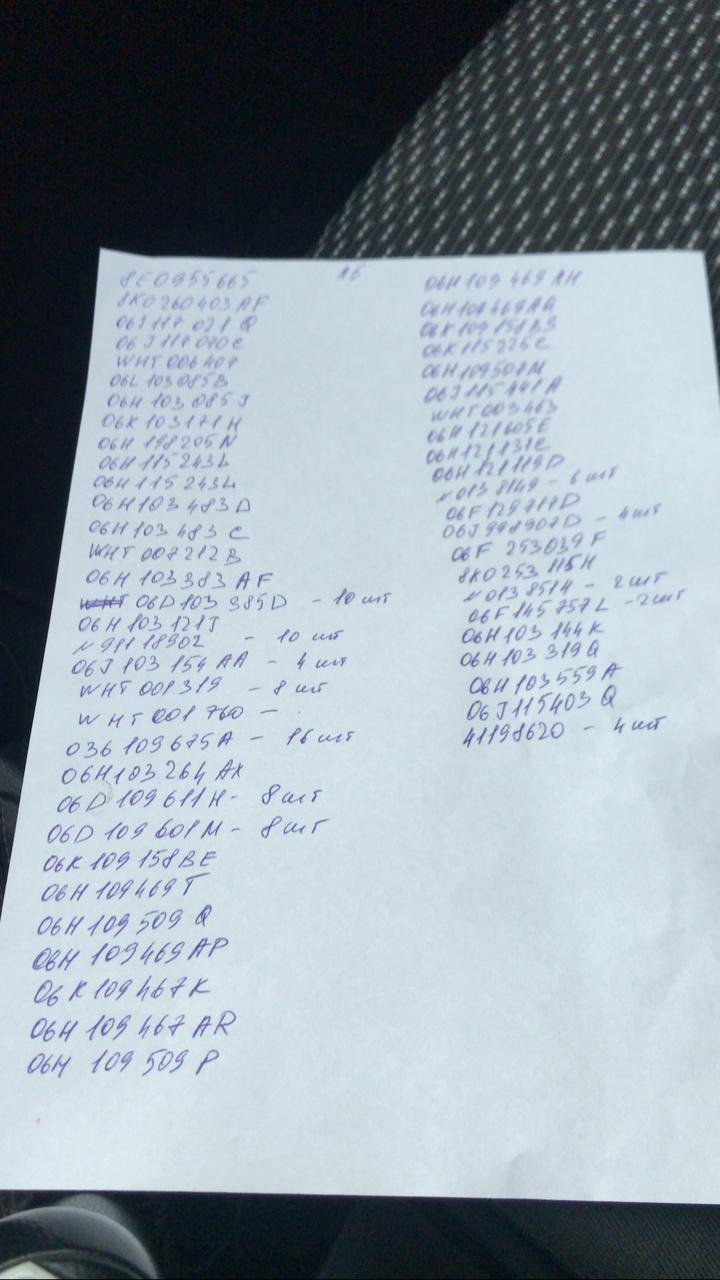 8E0955665
А5
8K0260403AF
06J 117 021 Q
06J 117 070C
WHT 006 407
06L 103 085B
06H 103 085J
06K 103171H
06H 198205N
06H 115 243L
06H 115 243L
06H103 483D
06H 103 483 C
WHT 007212B
06H 103383 AF
06D103 385D - 10 шт
06H 103 121J
N 911 18902 - 10 шт
06J 103 154 AA - 4 шт
WHT 001 319 - 8 шт
WHT 001 760 -
036 109 675A - 16 шт
06H103 264 AX
06D 109 611H - 8 шт
06D 109 601M - 8 шт
06K 109 158BE
06H 109469T
06H 109 509 Q
06H 109469 AP
06K109 467K
06H 109 467 AR
06H 109 509 P
06H 109 469 AH
06H109469AQ
06K 109 158BS
06K115225C
06H 109507M
06J 115 441 A
WHT003463
06H 121605E
06H121131C
06H 121 119D
N 013 8149 - 6 шт
06F 129717D
06J 998907D - 4 шт
06F 253039F
8K0253 115H
N 013 8514 - 2 шт
06F 145 757 L - 2 шт
06H 103 144K
06H 103 319Q
06H 103 559 A
06J115403 Q
41198620 - 4 шт